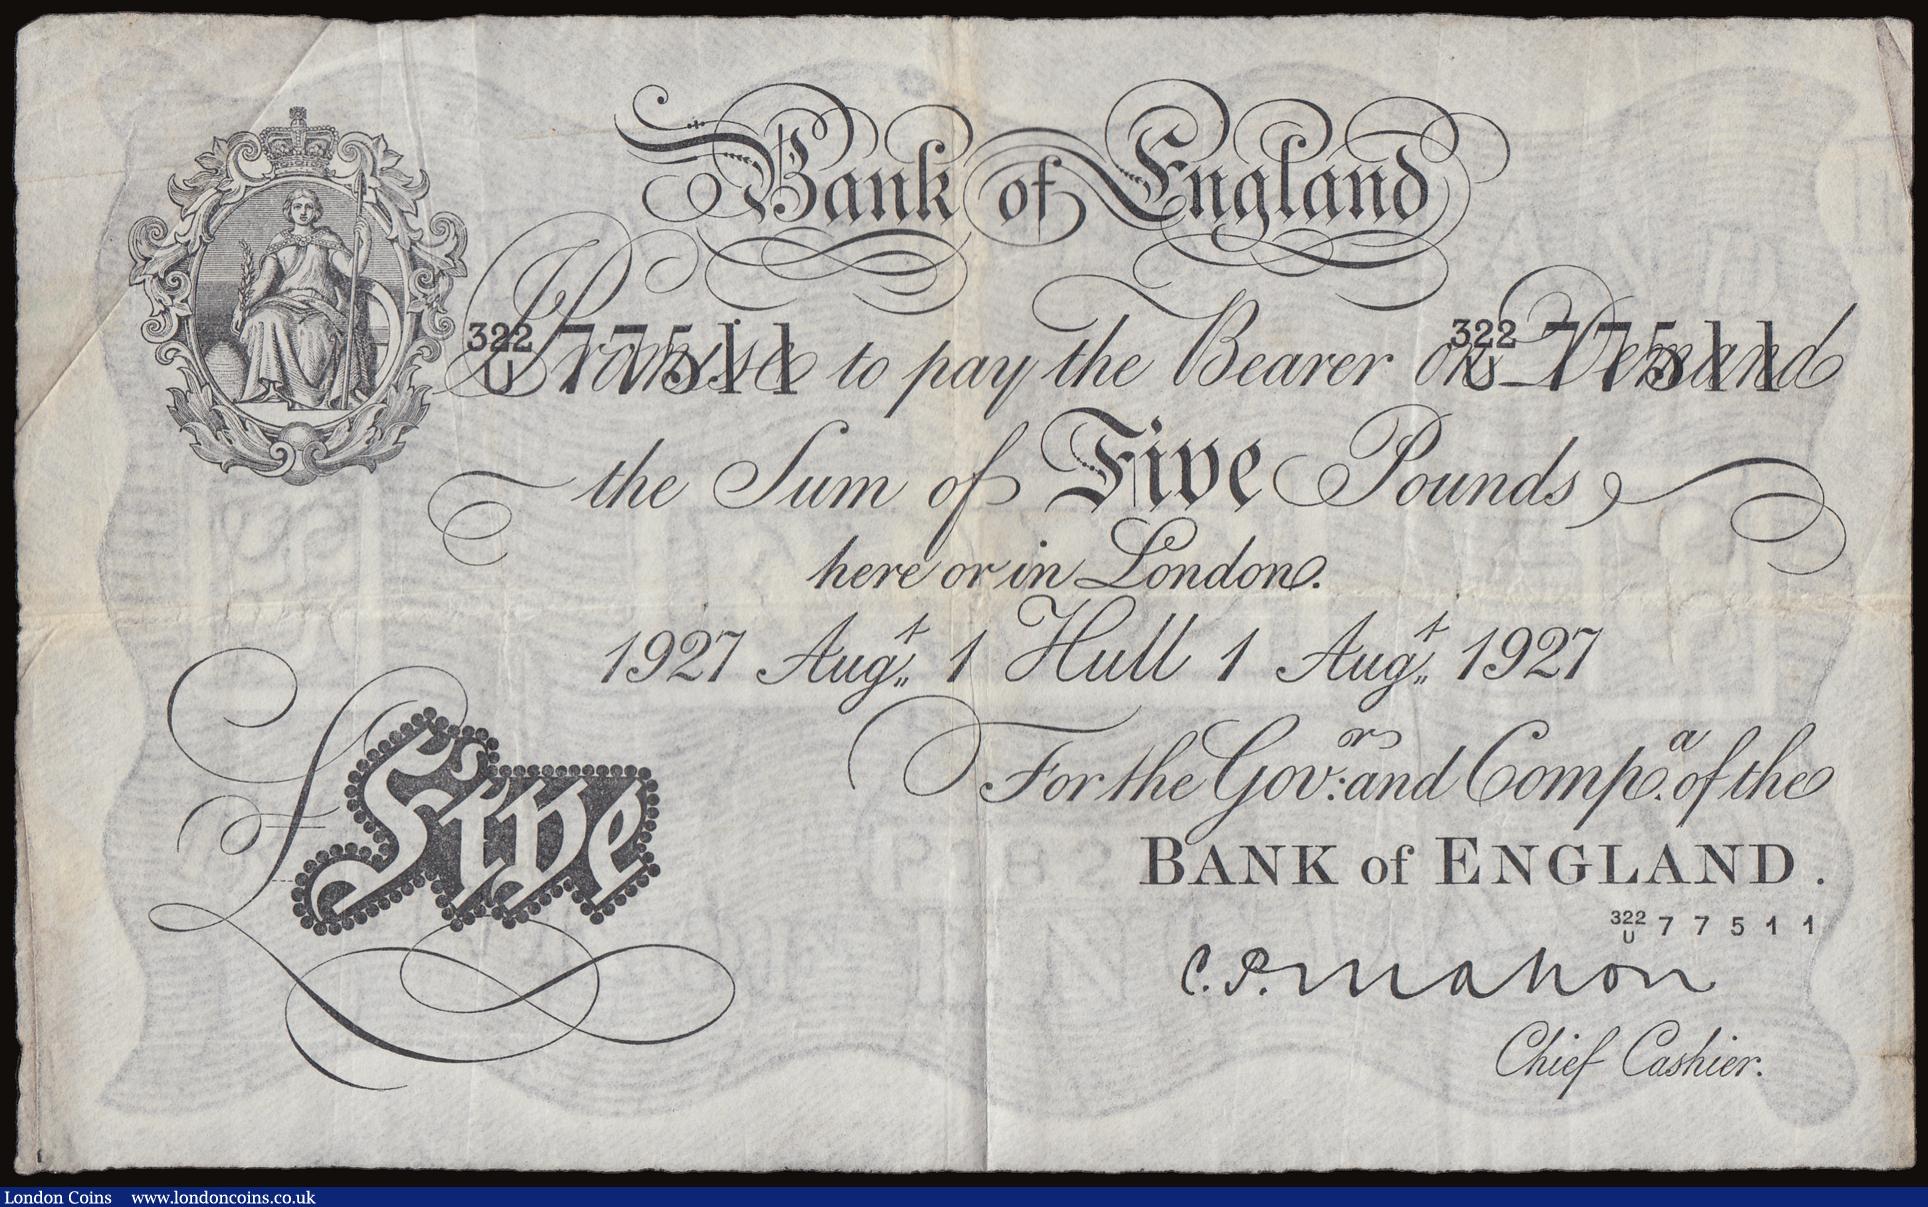 Bank of England
322
U 77511 322
U 77511
I Promise to pay the Bearer on Demand
the Sum of Five Pounds
here or in London.
1927 Augt. 1 Hull 1 Augt. 1927
For the Govr: and Compa. of the
BANK of ENGLAND.
322
U 77511
£Five
C. P. Mahon
Chief Cashier.
London Coins www.londoncoins.co.uk